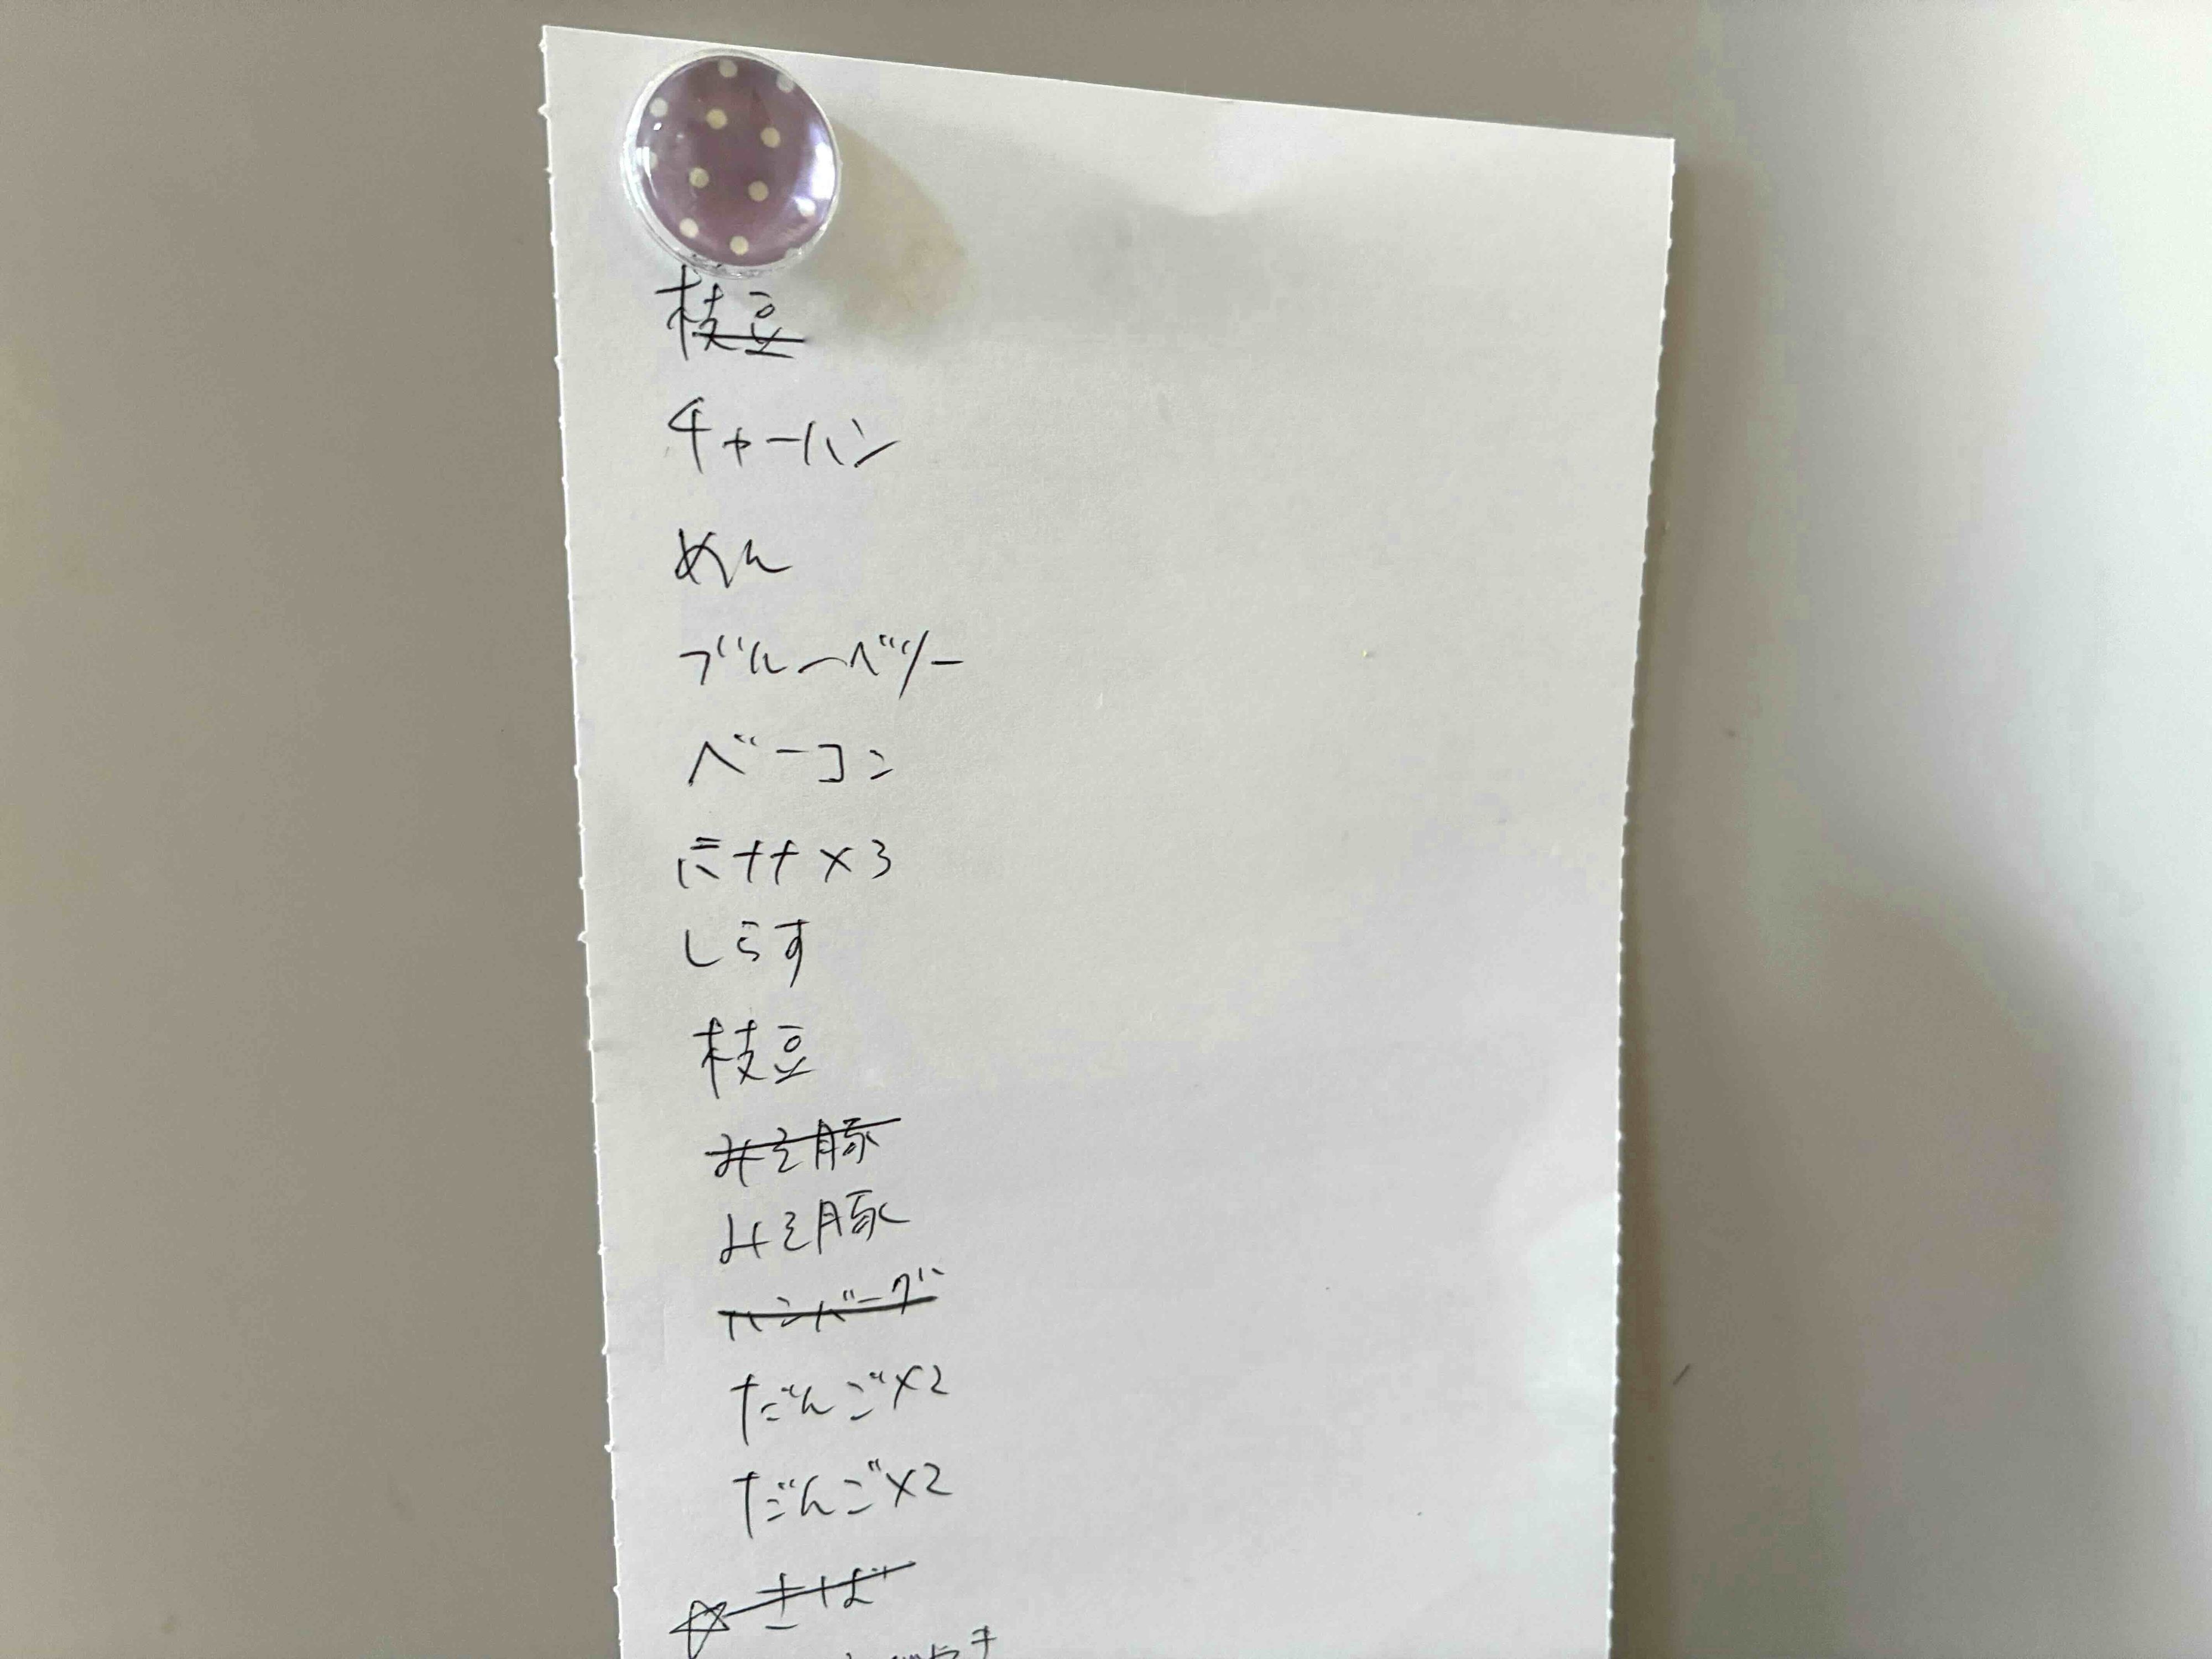 枝豆
チャーハン
めん
ブルーベリー
ベーコン
ササ×3
しらす
枝豆
みそ豚
みそ豚
ハンバーグ
だんご×2
だんご×2
☆さば